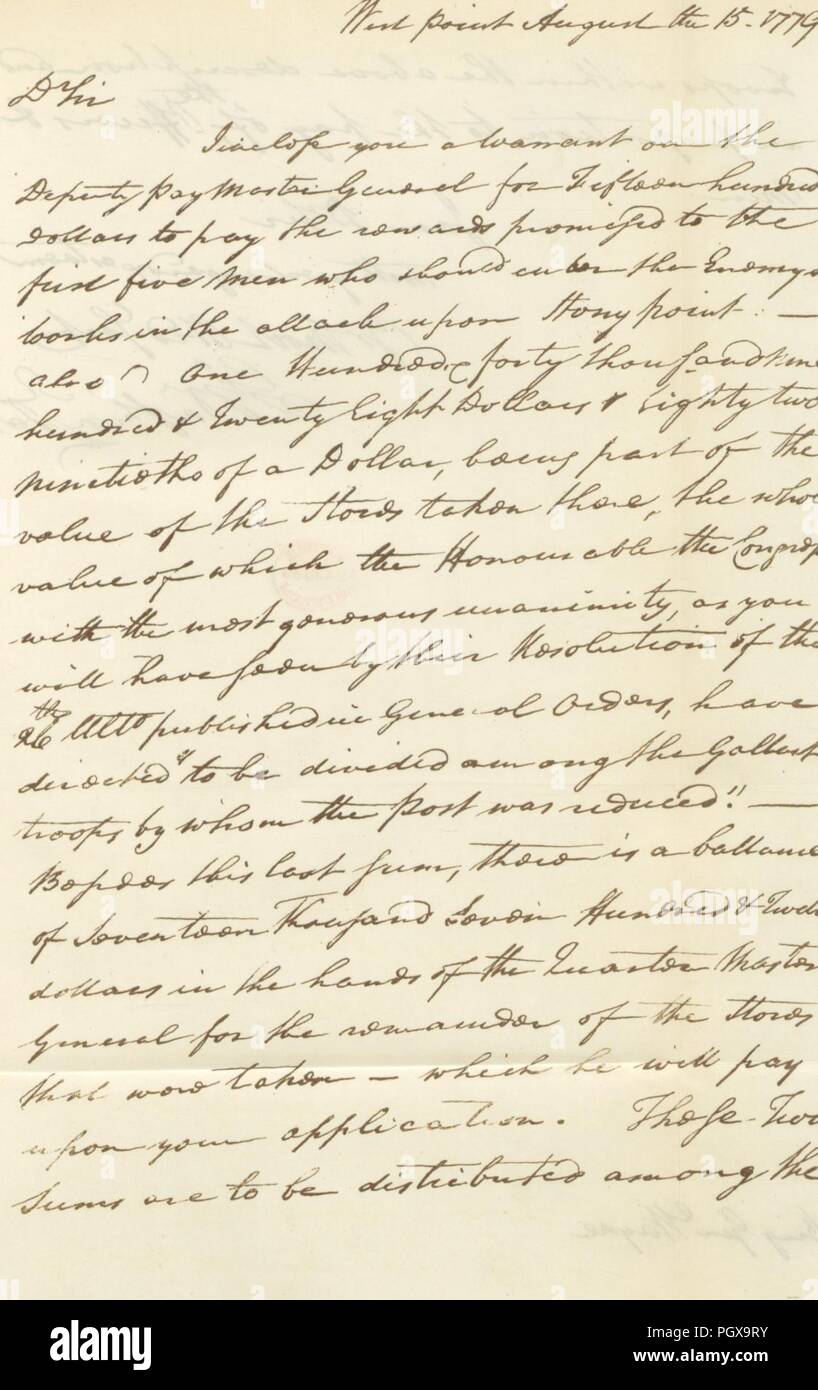 West point August the 15. 1779
Dr Sir
Inclose you a Warrant on the
Deputy Pay Master General for Fifteen hundred
dollars to pay the rewards promised to the
first five men who should enter the Enemys
works in the attack upon Stony point. —
also One Hundred & forty thousand nine
hundred & Twenty Eight Dollars & Eighty two
ninetieths of a Dollar, being part of the
value of the Stores taken there, the whole
value of which the Honourable the Congress
with the most generous unanimity, as you
will have seen by their Resolution of the
26th Ulto published in General Orders, have
directed "to be divided among the Gallant
troops by whom the post was reduced". —
Besides this last sum, there is a ballance
of Seventeen Thousand Seven Hundred & Twelve
dollars in the hands of the Quarter Master
General for the remainder of the Stores
that were taken — which he will pay
upon your application. These Two
sums are to be distributed among the
alamy
alamy
alamy
alamy
Image ID: PGX9RY
www.alamy.com